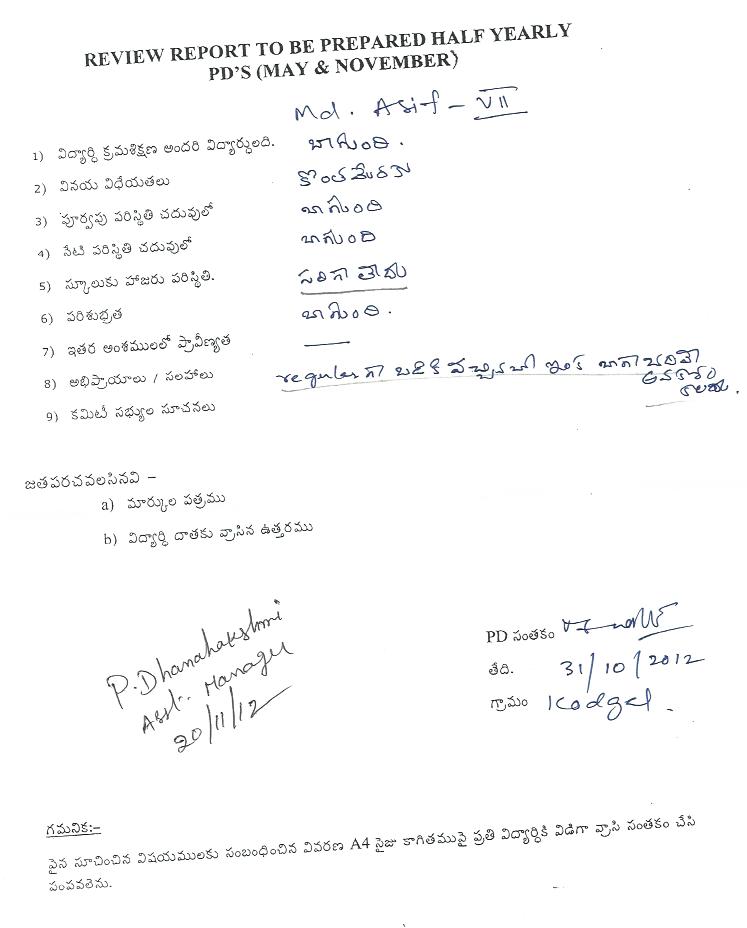 REVIEW REPORT TO BE PREPARED HALF YEARLY
PD'S (MAY & NOVEMBER)
Md. Asif - VII
1) విద్యార్ధి క్రమశిక్షణ అందరి విద్యార్ధులది. బాగుంది.
2) వినయ విధేయతలు కొంతమేరకు
3) పూర్వపు పరిస్థితి చదువులో బాగుంది
4) నేటి పరిస్థితి చదువులో బాగుంది
5) స్కూలుకు హాజరు పరిస్థితి. సరిగా లేదు
6) పరిశుభ్రత బాగుంది.
7) ఇతర అంశములలో ప్రావీణ్యత —
8) అభిప్రాయాలు / సలహాలు regularగా బడికి ఇంక బాగా చదివే
అవకాశం
కలదు.
9) కమిటీ సభ్యుల సూచనలు
జతపరచవలసినవి –
a) మార్కుల పత్రము
b) విద్యార్ధి దాతకు వ్రాసిన ఉత్తరము
P. Dhanalakshmi
Asst. Manager
20/11/12
PD సంతకం
తేది. 31/10/2012
గ్రామం Kodgal.
గమనిక:–
వైన సూచించిన విషయములకు సంబంధించిన వివరణ A4 సైజు కాగితముపై ప్రతి విద్యార్ధికి విడిగా వ్రాసి సంతకం చేసి
పంపవలెను.